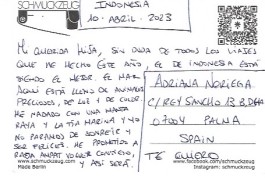 SCHMUCKZEUG
INDONESIA
10 - ABRIL - 2023
MI QUERIDA HIJA, SIN DUDA DE TODOS LOS VIAJES
QUE HE HECHO ESTE AÑO, EL DE INDONESIA ESTÁ
SIENDO EL MEJOR. EL MAR
AQUÍ ESTÁ LLENO DE ANIMALES
PRECIOSOS, DE LUZ Y DE COLOR.
HE NADADO CON UNA MANTA
RAYA Y LA TÍA MARINA Y YO
NO PARAMOS DE SONREIR Y
SER FELICES. ME PROMETIDO A
RAJA AMPAT VOLVER CONTIGO,
Y ASÍ SERÁ.
ADRIANA NORIEGA
C/ REY SANCHO 13 B,
07004 PALMA
SPAIN
TE QUIERO
www.schmuckzeug.com
Made Berlin
www.facebook.com/schmuckzeug
Instagram: schmuckzeug